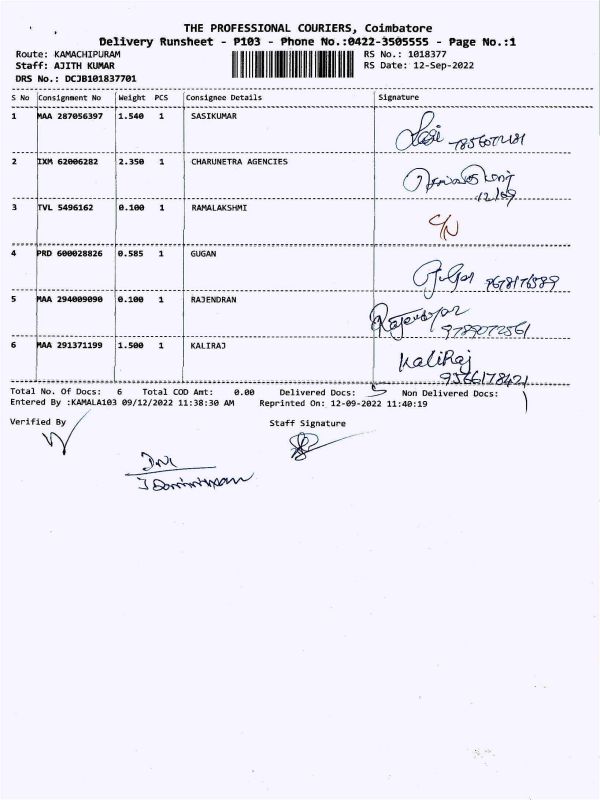 THE PROFESSIONAL COURIERS, Coimbatore
Delivery Runsheet - P103 - Phone No.:0422-3505555 - Page No.:1
Route: KAMACHIPURAM RS No.: 1018377
Staff: AJITH KUMAR RS Date: 12-Sep-2022
DRS No.: DCJB101837701
S No Consignment No Weight PCS Consignee Details Signature
1 MAA 287056397 1.540 1 SASIKUMAR
2 IXM 62006282 2.350 1 CHARUNETRA AGENCIES
12/09
3 TVL 5496162 0.100 1 RAMALAKSHMI
4 PRD 600028826 0.585 1 GUGAN
5 MAA 294009090 0.100 1 RAJENDRAN
9789072561
6 MAA 291371199 1.500 1 KALIRAJ KaliRaj
9566178421
Total No. Of Docs: 6 Total COD Amt: 0.00 Delivered Docs: 5 Non Delivered Docs: 1
Entered By :KAMALA103 09/12/2022 11:38:30 AM Reprinted On: 12-09-2022 11:40:19
Verified By Staff Signature